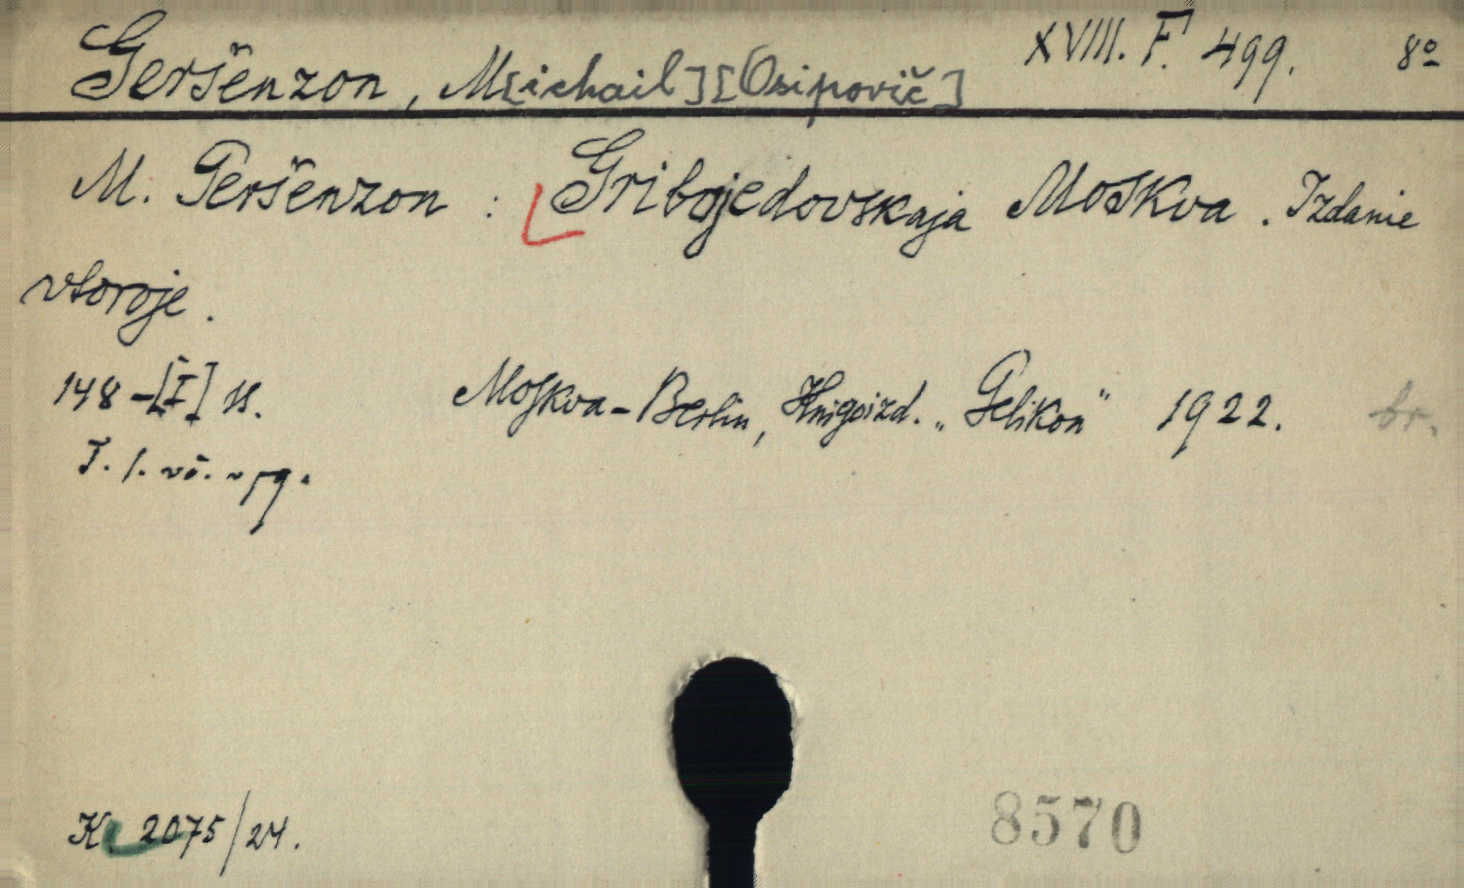 Geršenzon, M[ichail] [Osipovič] XVIII. F. 499. 8º
M. Geršenzon : Gribojedovskaja Moskva. Izdanie
vtoroje.
148-[I] s. Moskva-Berlin, Knigoizd. „Gelikon" 1922. br.
K 2075/24. 8570